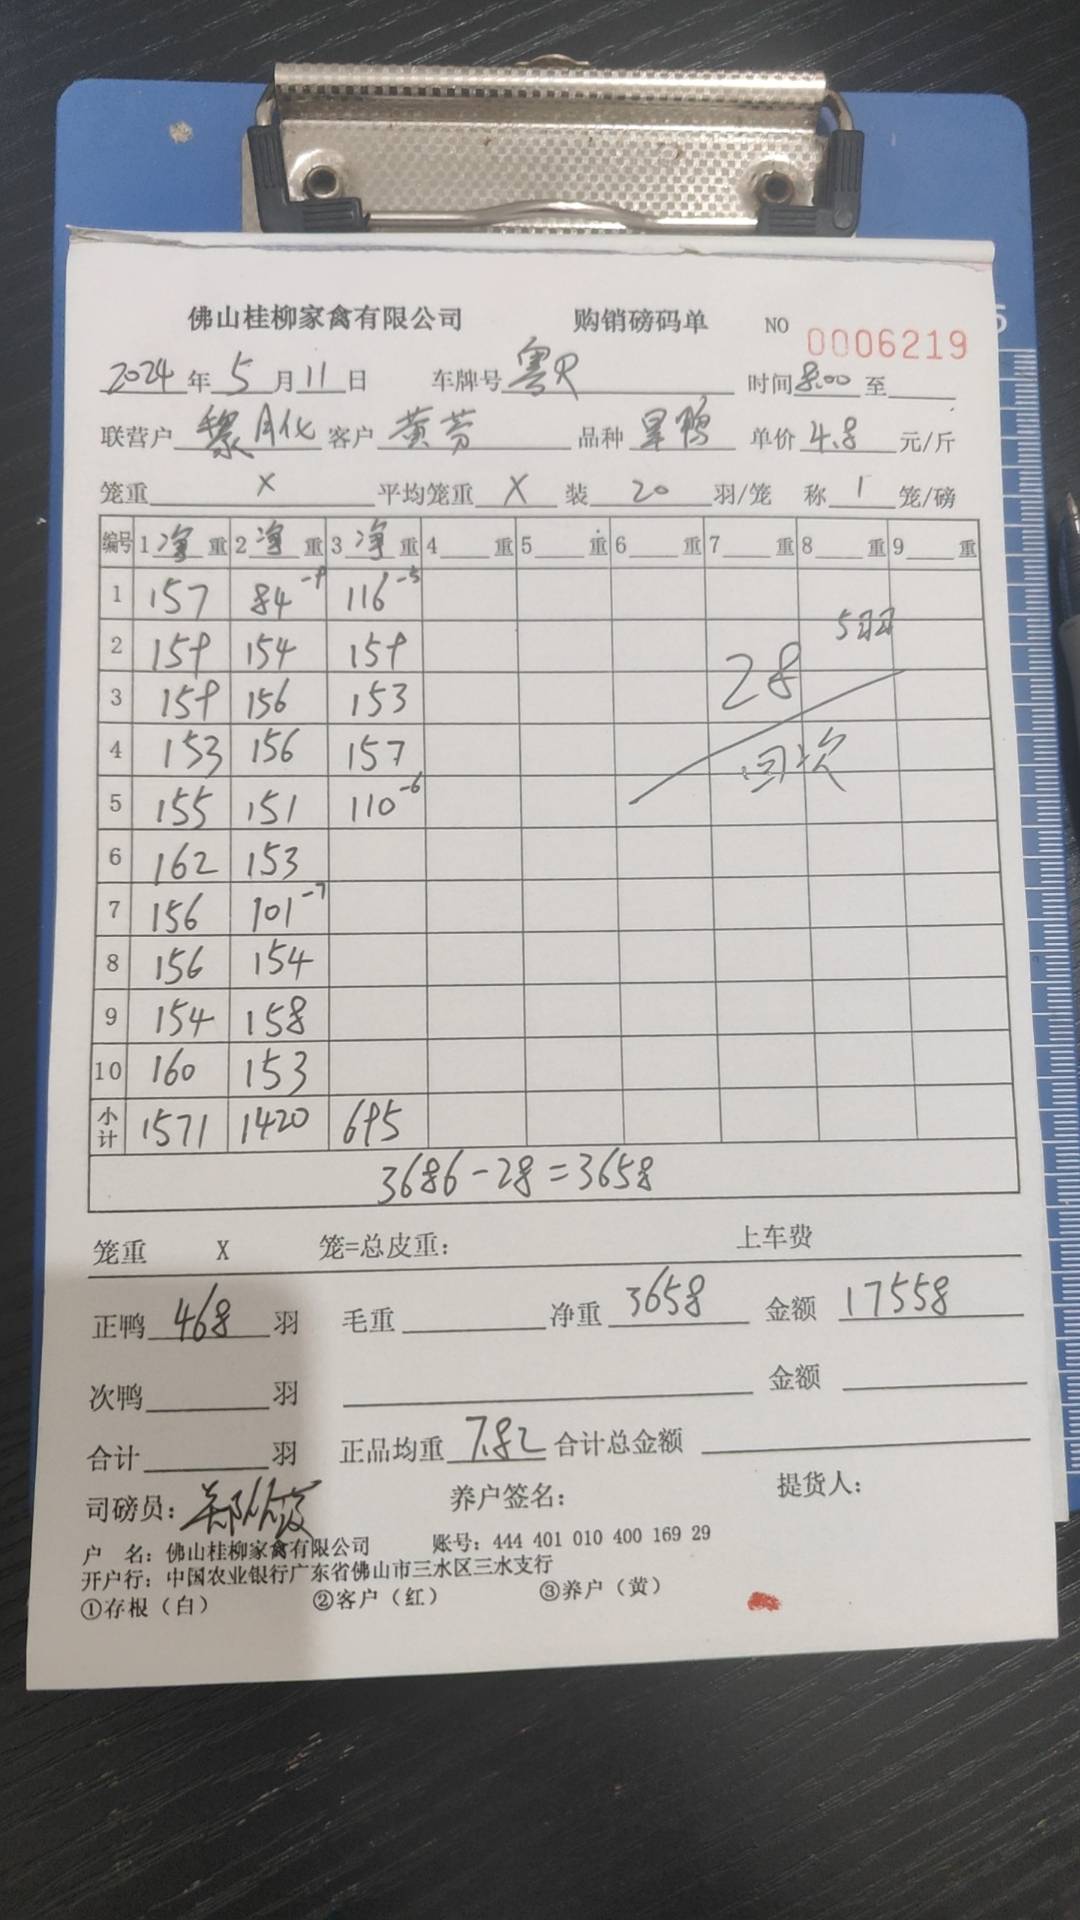 佛山桂柳家禽有限公司 购销磅码单 NO 0006219
2024年5月11日 车牌号粤R 时间8:00至
联营户黎月化 客户黄芬 品种旱鸭 单价4.8元/斤
笼重X 平均笼重X 装20羽/笼 称1笼/磅
编号 1净重 2净重 3净重 4重 5重 6重 7重 8重 9重
1 157 84-9 116-5
2 159 154 159 28 5羽
3 159 156 153
4 153 156 157 回次
5 155 151 110-6
6 162 153
7 156 101-7
8 156 154
9 154 158
10 160 153
小计 1571 1420 695
3686-28=3658
笼重 X 笼=总皮重: 上车费
正鸭468羽 毛重 净重3658 金额17558
次鸭 羽 金额
合计 羽 正品均重7.82 合计总金额
司磅员: 养户签名: 提货人:
户 名: 佛山桂柳家禽有限公司 账号: 444 401 010 400 169 29
开户行: 中国农业银行广东省佛山市三水区三水支行
①存根(白) ②客户(红) ③养户(黄)